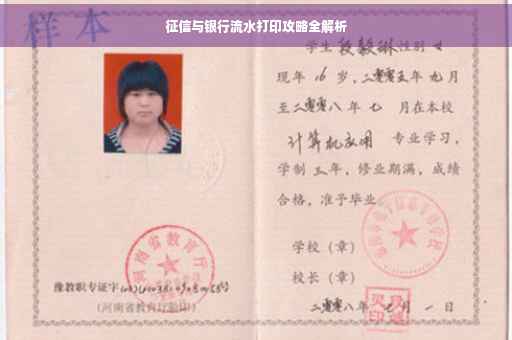 征信与银行流水打印攻略全解析
样本
学生段毅琳性别女
现年16岁，二零零五年九月
至二零零八年七月在本校
计算机应用专业学习，
学制三年，修业期满，成绩
合格，准予毕业。
学校（章）
校长（章）
二零零八年七月一日
河南省教育厅
豫教职专证字
(河南省教育厅验印)